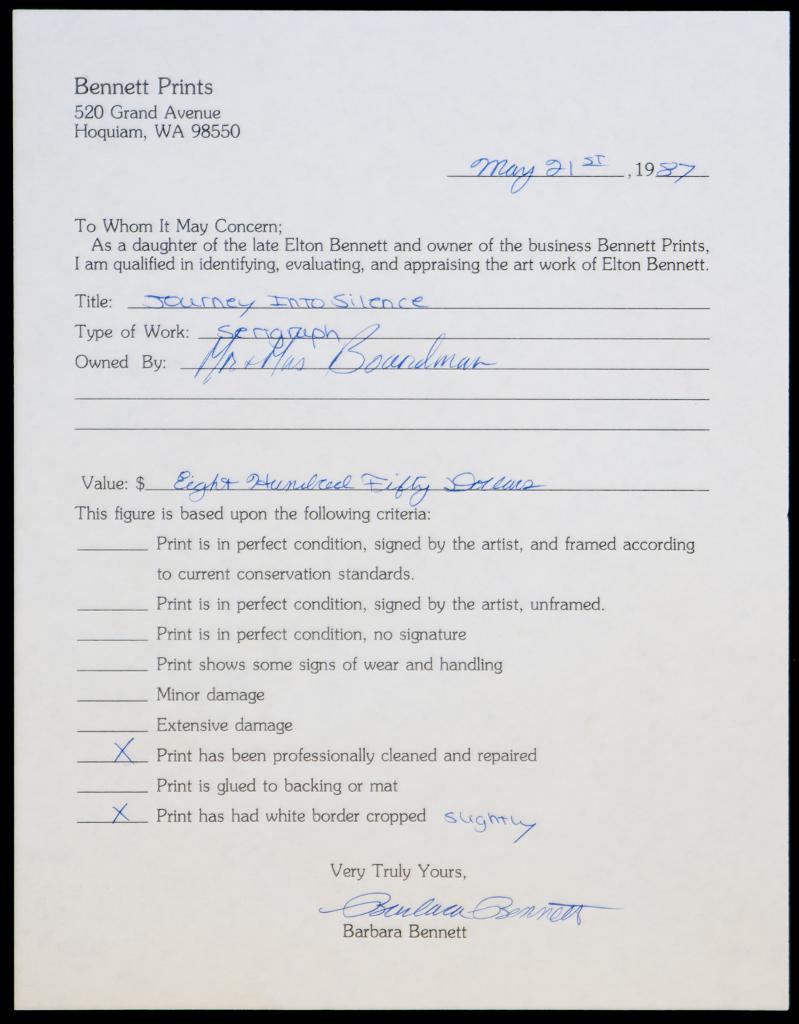 Bennett Prints
520 Grand Avenue
Hoquiam, WA 98550
May 21st, 1987
To Whom It May Concern;
As a daughter of the late Elton Bennett and owner of the business Bennett Prints,
I am qualified in identifying, evaluating, and appraising the art work of Elton Bennett.
Title: Journey Into Silence
Type of Work: Serigraph
Owned By: Mr + Mrs Boardman
Value: $ Eight Hundred Fifty Dollars
This figure is based upon the following criteria:
Print is in perfect condition, signed by the artist, and framed according
to current conservation standards.
Print is in perfect condition, signed by the artist, unframed.
Print is in perfect condition, no signature
Print shows some signs of wear and handling
Minor damage
Extensive damage
X Print has been professionally cleaned and repaired
Print is glued to backing or mat
X Print has had white border cropped slightly
Very Truly Yours,
Barbara Bennett
Barbara Bennett